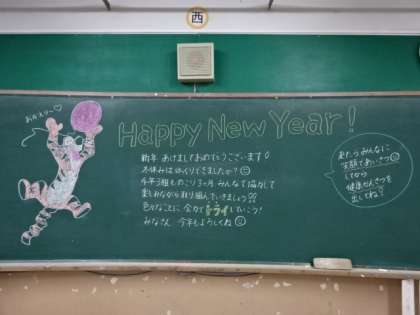 西
Happy New Year!
新年 あけましておめでとうございます!
冬休みはゆっくりできましたか?
今年3組ものこり3ヶ月 みんなで協力して
楽しみながら取り組んでいきましょう!!
色々なことに 全力でトライしていこう!
みなさん 今年もよろしくね
来たらみんなに
笑顔であいさつ
してから
健康かんさつを
出してね!